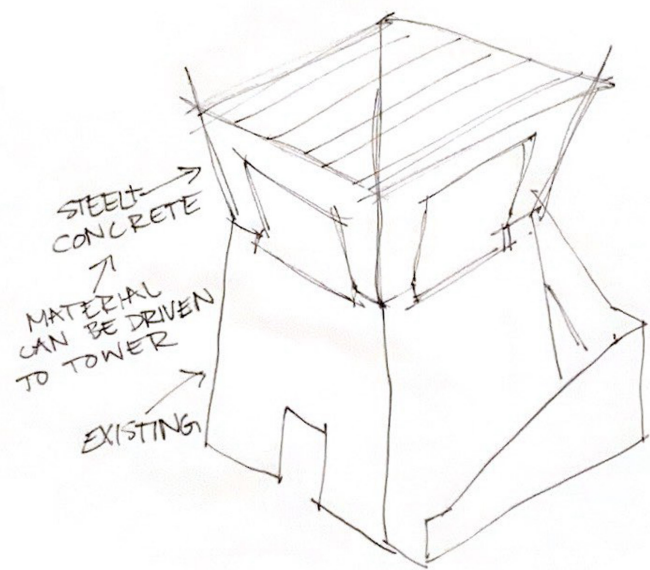 STEEL+
CONCRETE
MATERIAL
CAN BE DRIVEN
TO TOWER
EXISTING